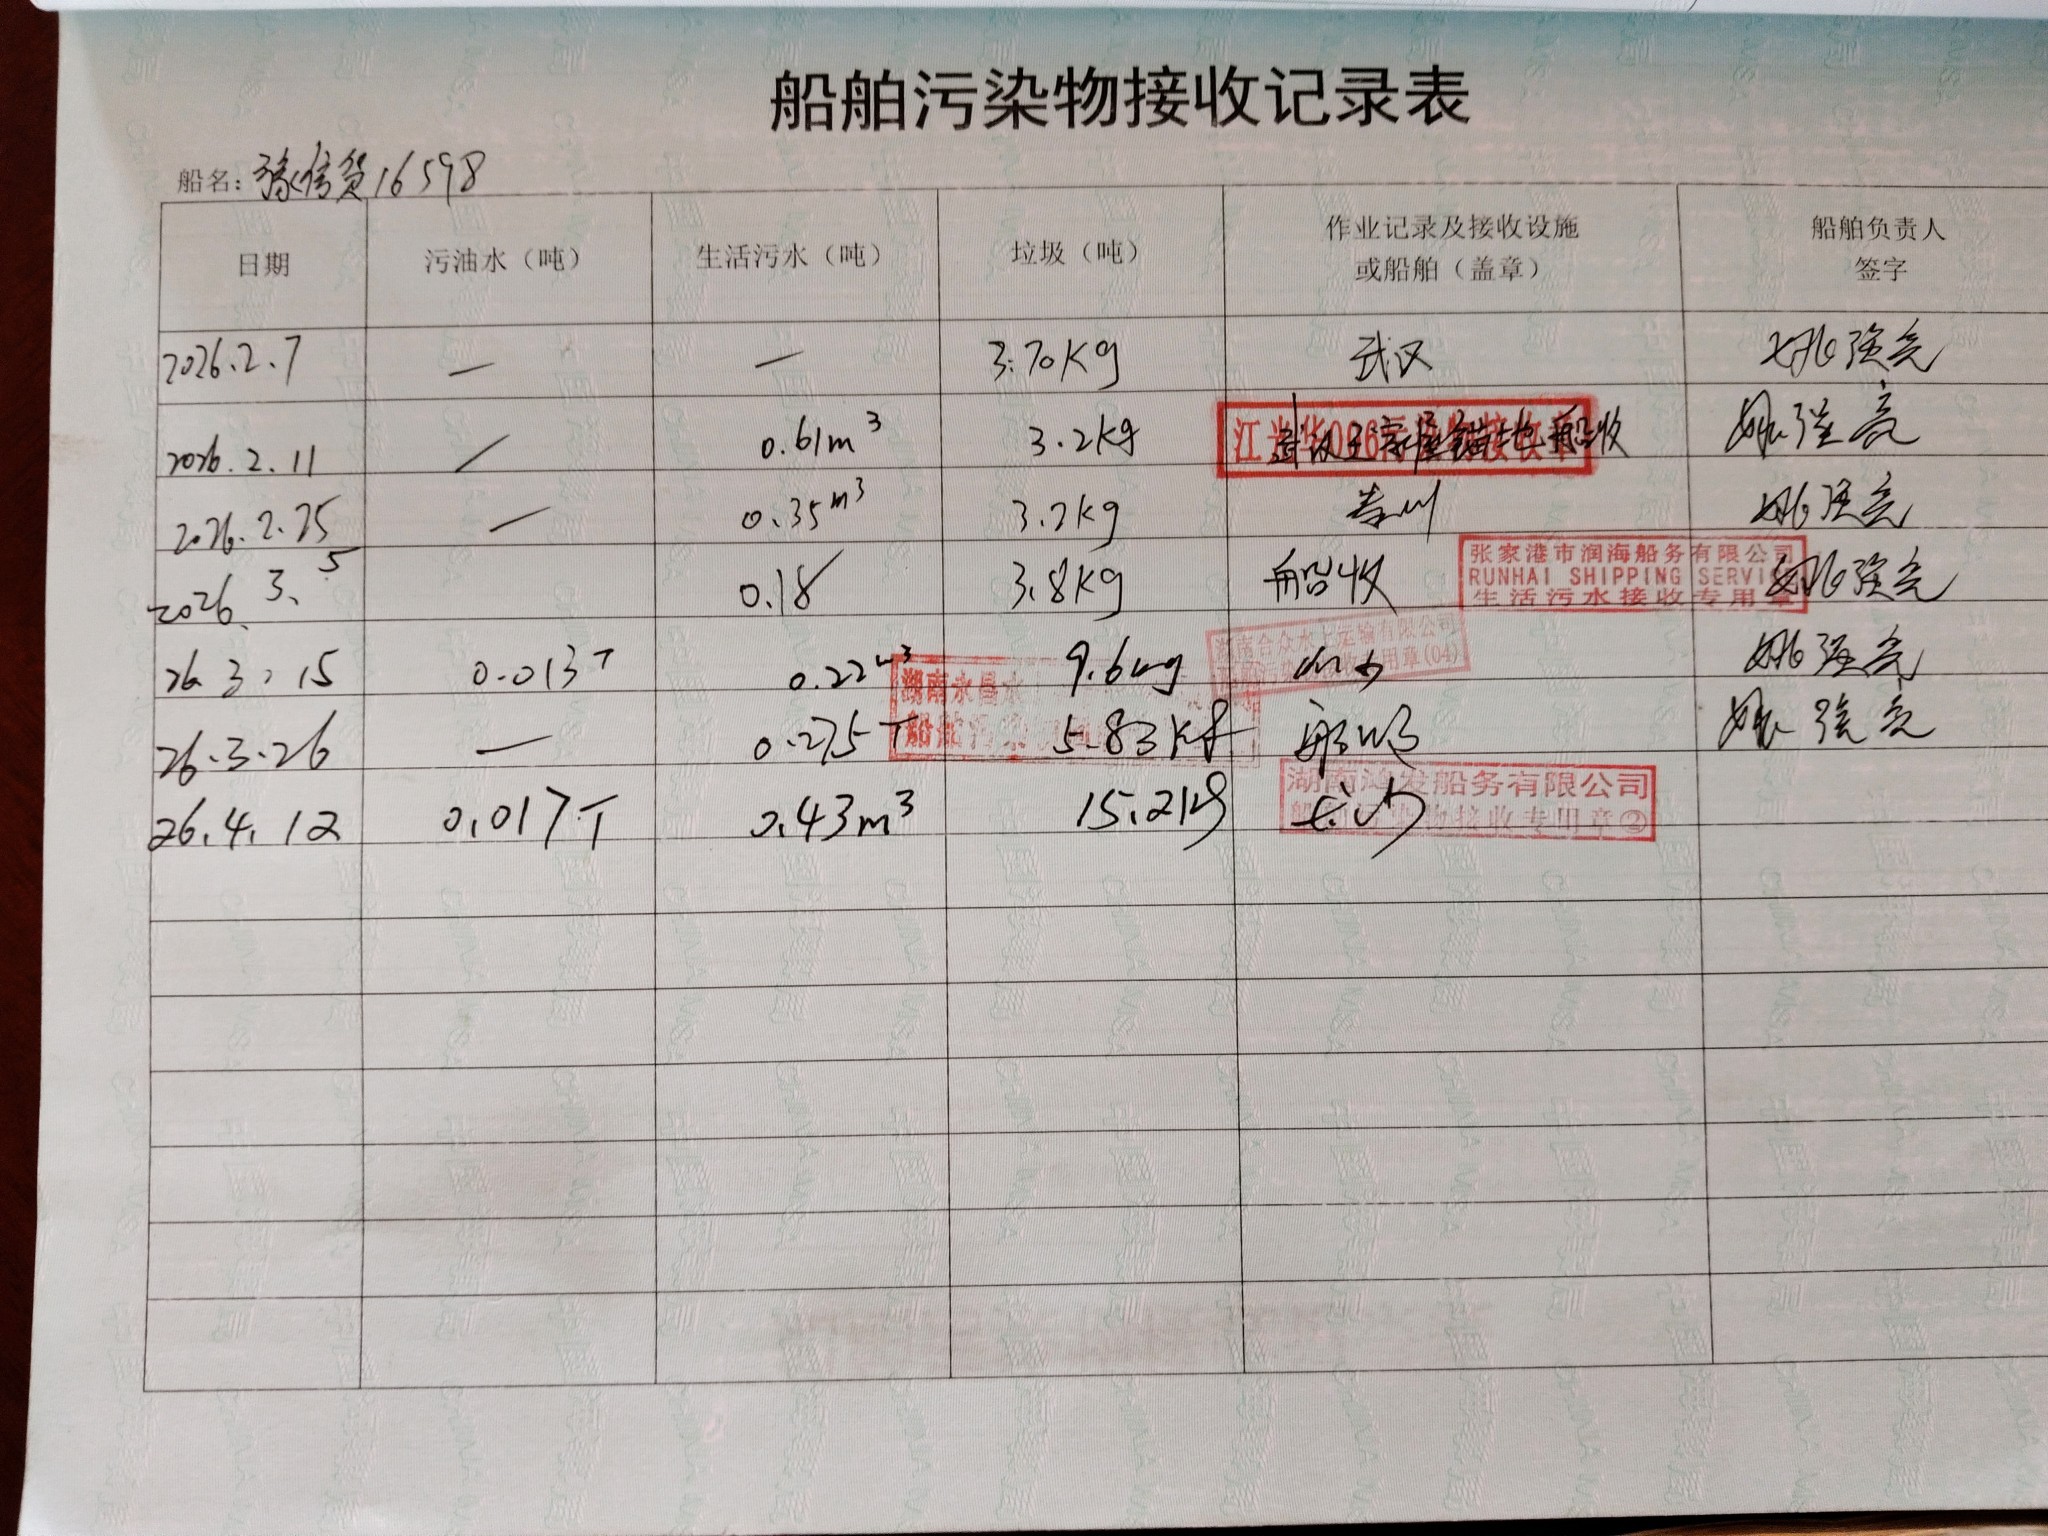 船舶污染物接收记录表
船名：豫信货16598
日期 污油水（吨） 生活污水（吨） 垃圾（吨） 作业记录及接收设施或船舶（盖章） 船舶负责人签字
2026.2.7 — — 3.70Kg 武汉 姚强亮
2026.2.11 / 0.61m³ 3.2Kg 锚地船收 姚强亮
江 华 接收
2026.2.25 — 0.35m³ 3.2Kg 姚强亮
2026.3.5 0.18 3.8Kg 船收 姚强亮
张家港市润海船务有限公司
RUNHAI SHIPPING SERVI
生活污水接收专用章
26.3.15 0.013T 0.22m³ 9.6kg 姚强亮
湖南合众水上运输有限公司
专用章(04)
26.3.26 — 0.275T 5.83Kg 姚强亮
湖南永昌水
船舶污染
26.4.12 0.017T 0.43m³ 15.2kg 长沙
湖南鸿发船务有限公司
船舶污染物接收专用章②